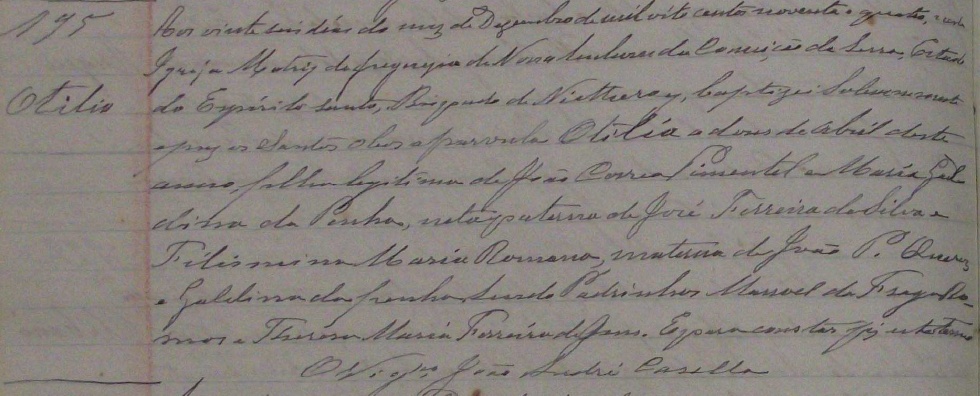 195
Otilia
Aos vinte seis dias do mez de Dezembro de mil oito centos noventa e quatro, nesta
Igreja Matriz da freguezia de Nossa Senhora da Conceição da Serra, Estado
do Espirito Santo, Bispado de Nictheroy, baptizei Solemnemente
e puz os Santos oleos a parvula Otilia a doze de abril deste
anno, filha legitima de João Correa Pimentel e Maria Gal
dina da Penha, neta paterna de José Ferreira da Silva e
Filismina Maria Romana, materna de João P. Queroz
e Galdina da Penha Sendo Padrinhos Manoel da Fraga Ra-
mos e Thereza Maria Ferreira de Jesus. E para constar fiz este termo
O Vigro João André Casella